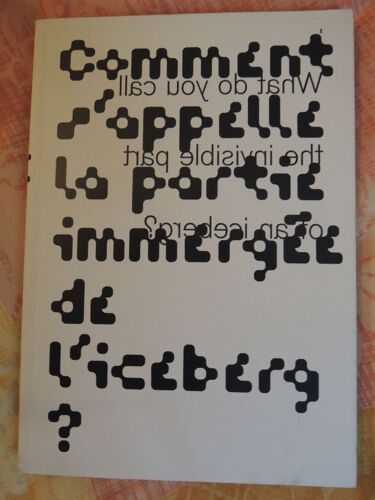 Comment
What do you call
s'appelle
the invisible part
la partie
of an iceberg?
immergée
de
l'iceberg
?